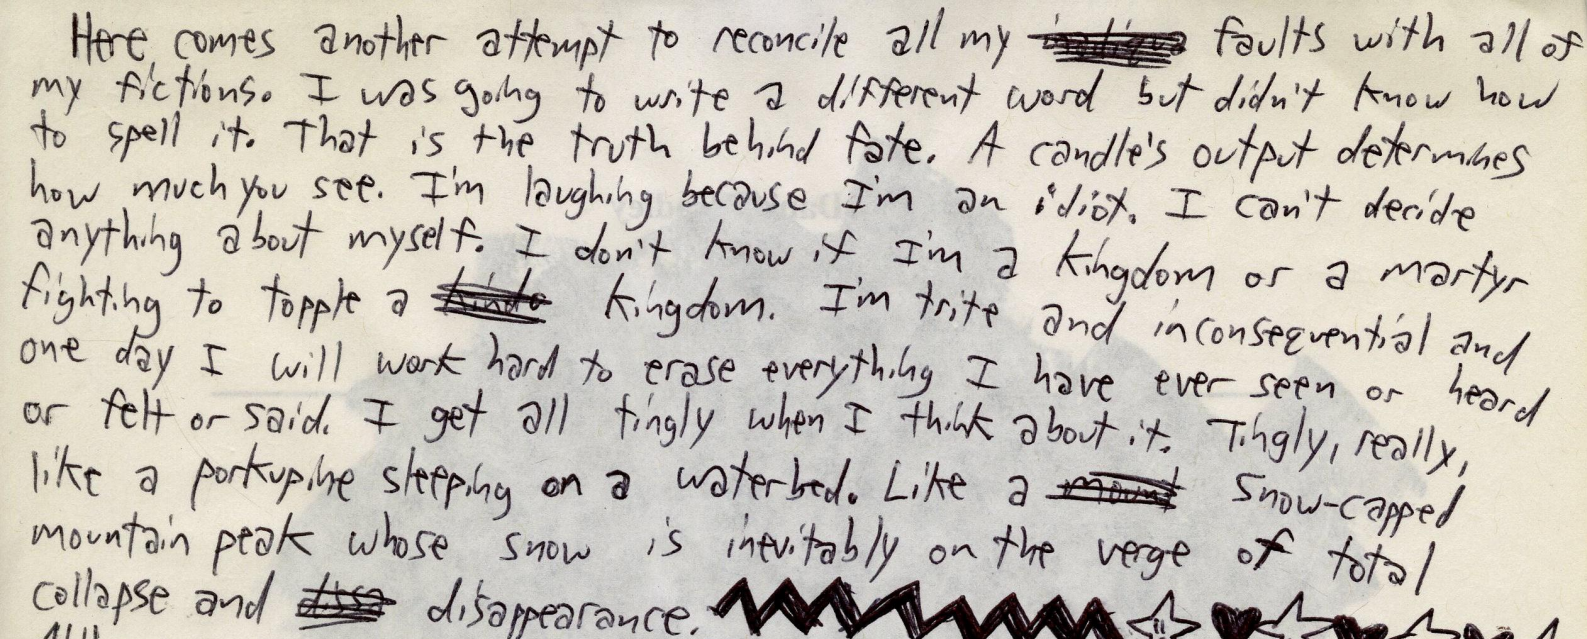 Here comes another attempt to reconcile all my faults with all of
my fictions. I was going to write a different word but didn't know how
to spell it. That is the truth behind fate. A candle's output determines
how much you see. I'm laughing because I'm an idiot. I can't decide
anything about myself. I don't know if I'm a kingdom or a martyr
fighting to topple a kingdom. I'm trite and inconsequential and
one day I will work hard to erase everything I have ever seen or heard
or felt or said. I get all tingly when I think about it. Tingly, really,
like a porkupine sleeping on a waterbed. Like a mount snow-capped
mountain peak whose snow is inevitably on the verge of total
collapse and dissa disappearance.